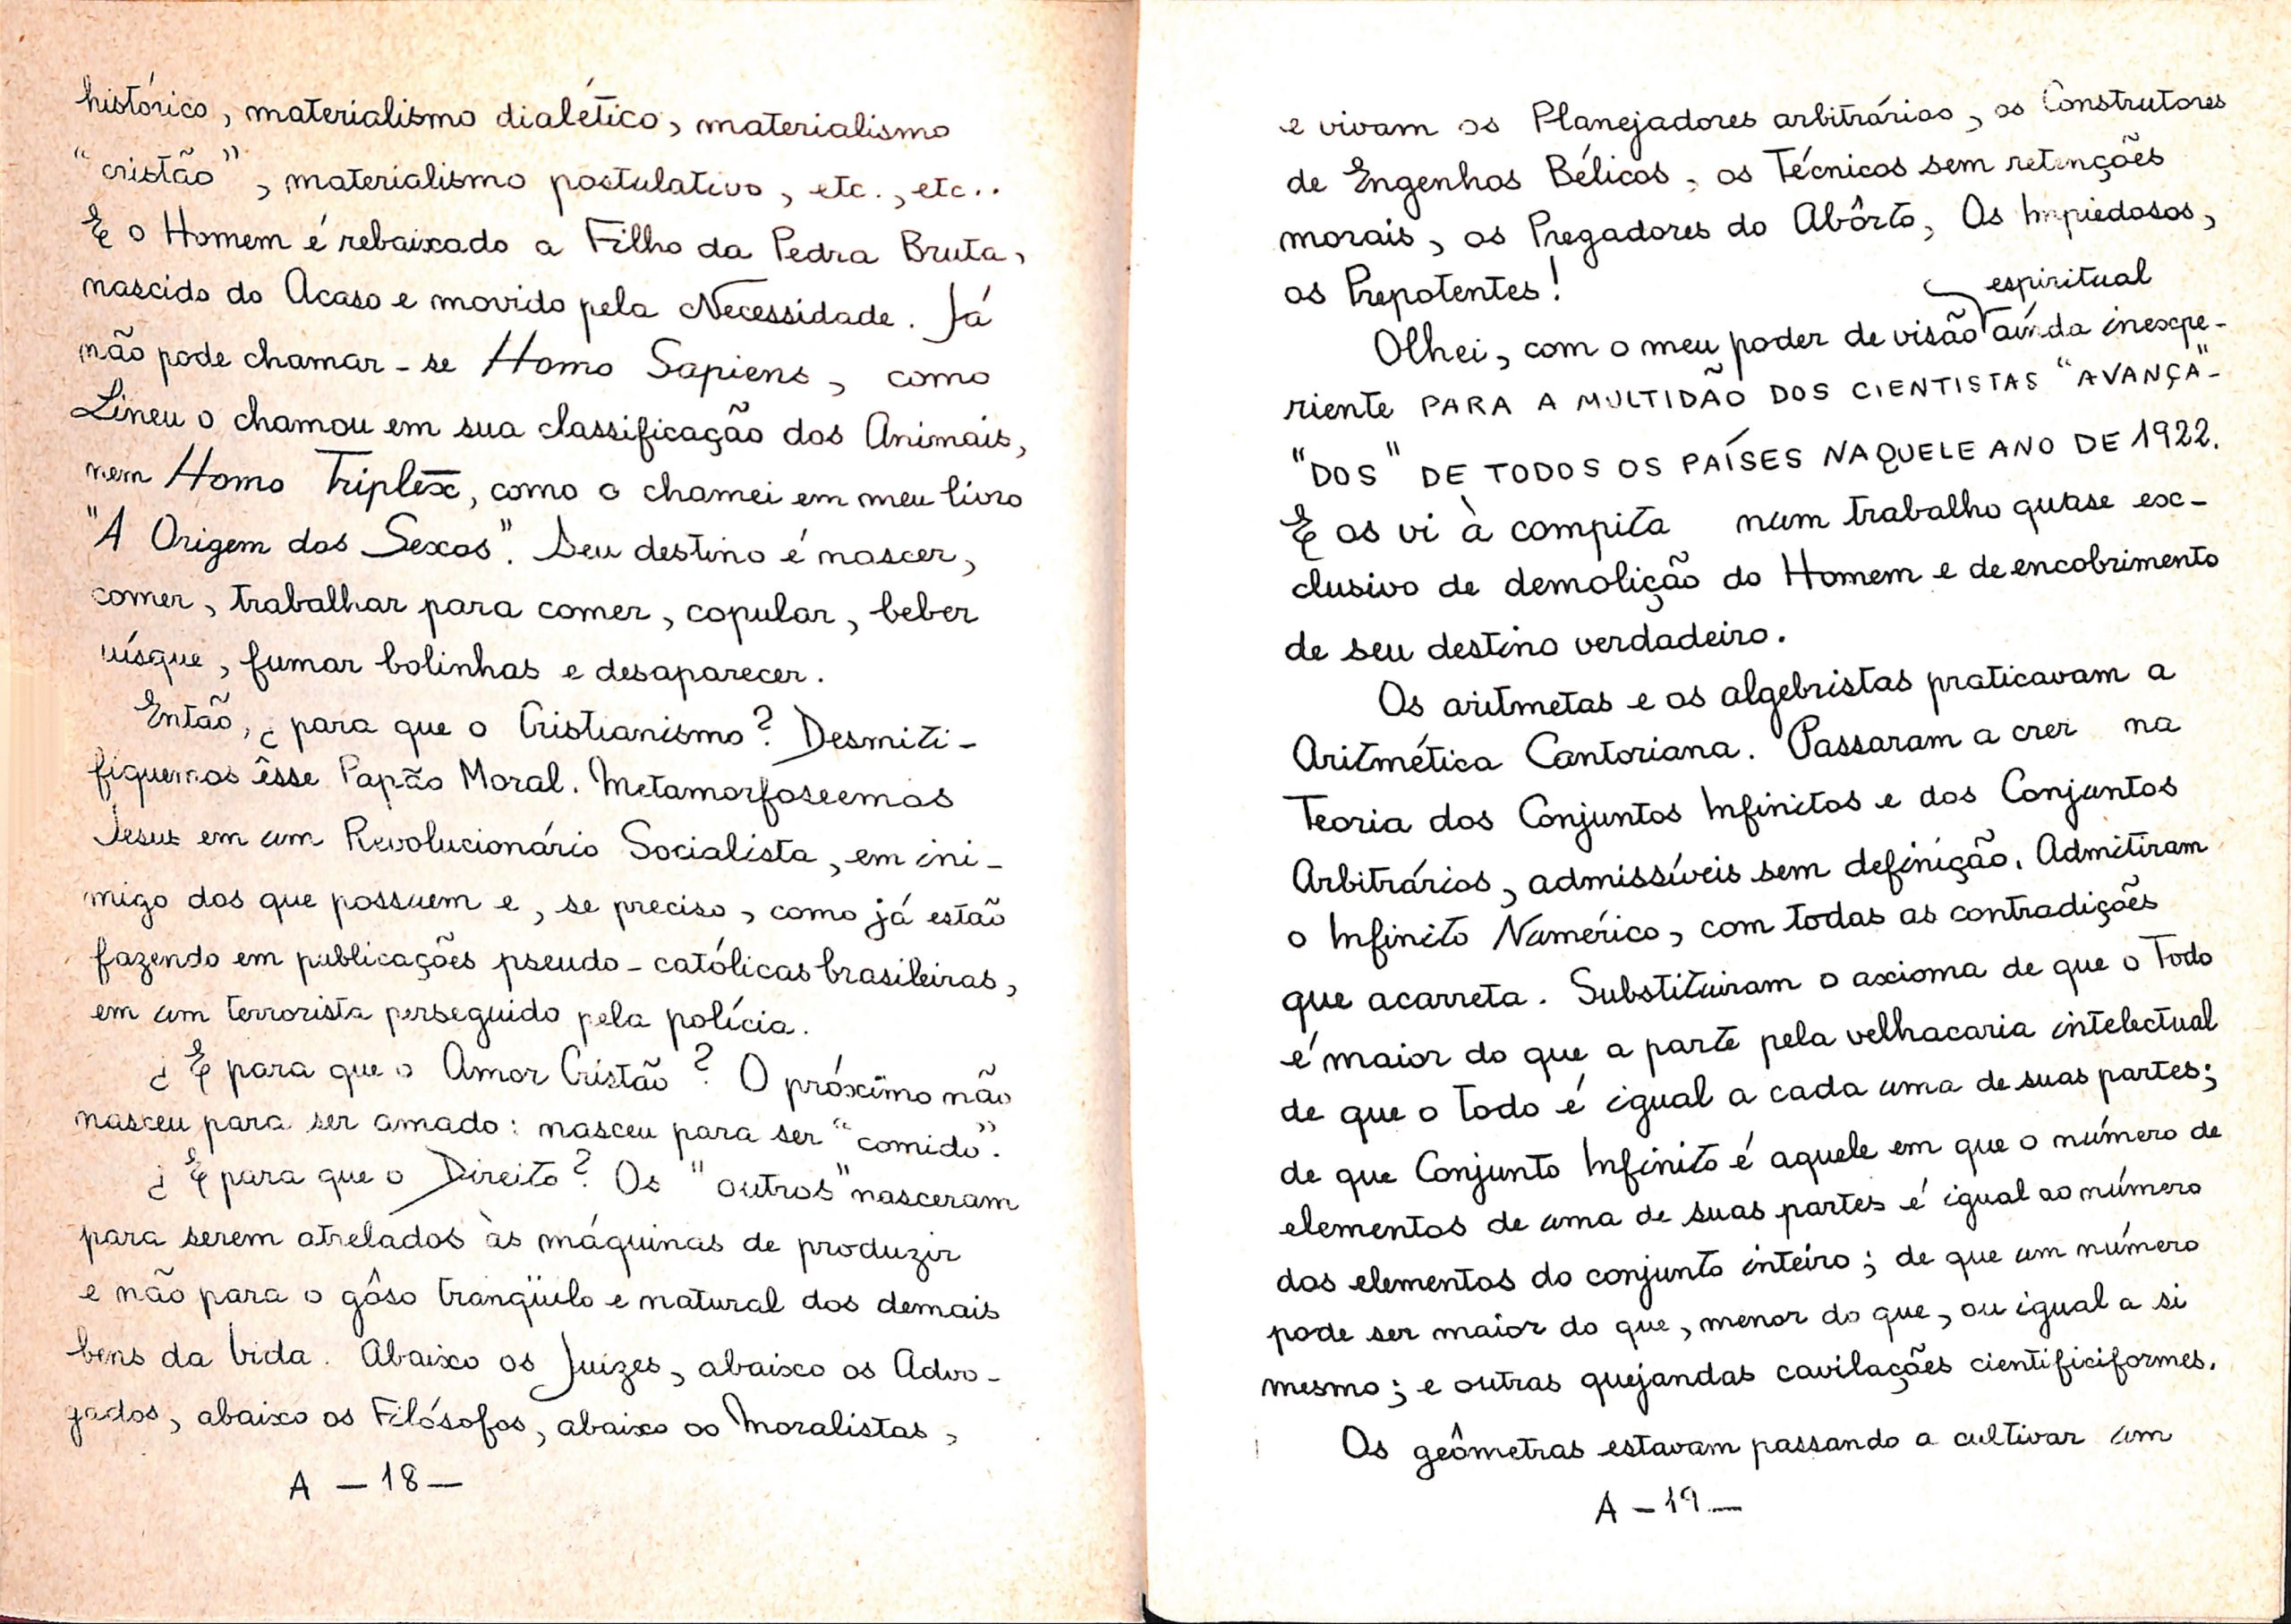 histórico, materialismo dialético, materialismo
"cristão", materialismo postulativo, etc., etc..
E o Homem é rebaixado a Filho da Pedra Bruta,
nascido do Acaso e movido pela Necessidade. Já
não pode chamar-se Homo Sapiens, como
Lineu o chamou em sua classificação dos Animais,
nem Homo Triplex, como o chamei em meu livro
"A Origem dos Sexos". Seu destino é nascer,
comer, trabalhar para comer, copular, beber
uísque, fumar bolinhas e desaparecer.
Então, ¿ para que o Cristianismo? Desmiti-
fiquemos êsse Papão Moral. Metamorfoseemos
Jesus em um Revolucionário Socialista, em ini-
migo dos que possuem e, se preciso, como já estão
fazendo em publicações pseudo-católicas brasileiras,
em um terrorista perseguido pela polícia.
¿ E para que o Amor Cristão? O próximo não
nasceu para ser amado: nasceu para ser "comido".
¿ E para que o Direito? Os "outros" nasceram
para serem atrelados às máquinas de produzir
e não para o gôso tranqüilo e natural dos demais
bens da Vida. Abaixo os Juízes, abaixo os Advo-
gados, abaixo os Filósofos, abaixo os Moralistas,
A — 18 —
e vivam os Planejadores arbitrários, os Construtores
de Engenhos Bélicos, os Técnicos sem retenções
morais, os Pregadores do Abôrto, Os Impiedosos,
os Prepotentes!
espiritual
Olhei, com o meu poder de visão ainda inexpe-
riente PARA A MULTIDÃO DOS CIENTISTAS "AVANÇA"-
"DOS" DE TODOS OS PAÍSES NAQUELE ANO DE 1922.
E os vi à compita num trabalho quase ex-
clusivo de demolição do Homem e de encobrimento
de seu destino verdadeiro.
Os aritmetas e os algebristas praticavam a
Aritmética Cantoriana. Passaram a crer na
Teoria dos Conjuntos Infinitos e dos Conjuntos
Arbitrários, admissíveis sem definição. Admitiram
o Infinito Numérico, com todas as contradições
que acarreta. Substituiram o axioma de que o Todo
é maior do que a parte pela velhacaria intelectual
de que o Todo é igual a cada uma de suas partes;
de que Conjunto Infinito é aquele em que o número de
elementos de uma de suas partes é igual ao número
dos elementos do conjunto inteiro; de que um número
pode ser maior do que, menor do que, ou igual a si
mesmo; e outras quejandas cavilações cientificiformes.
Os geômetras estavam passando a cultivar um
A — 19 —